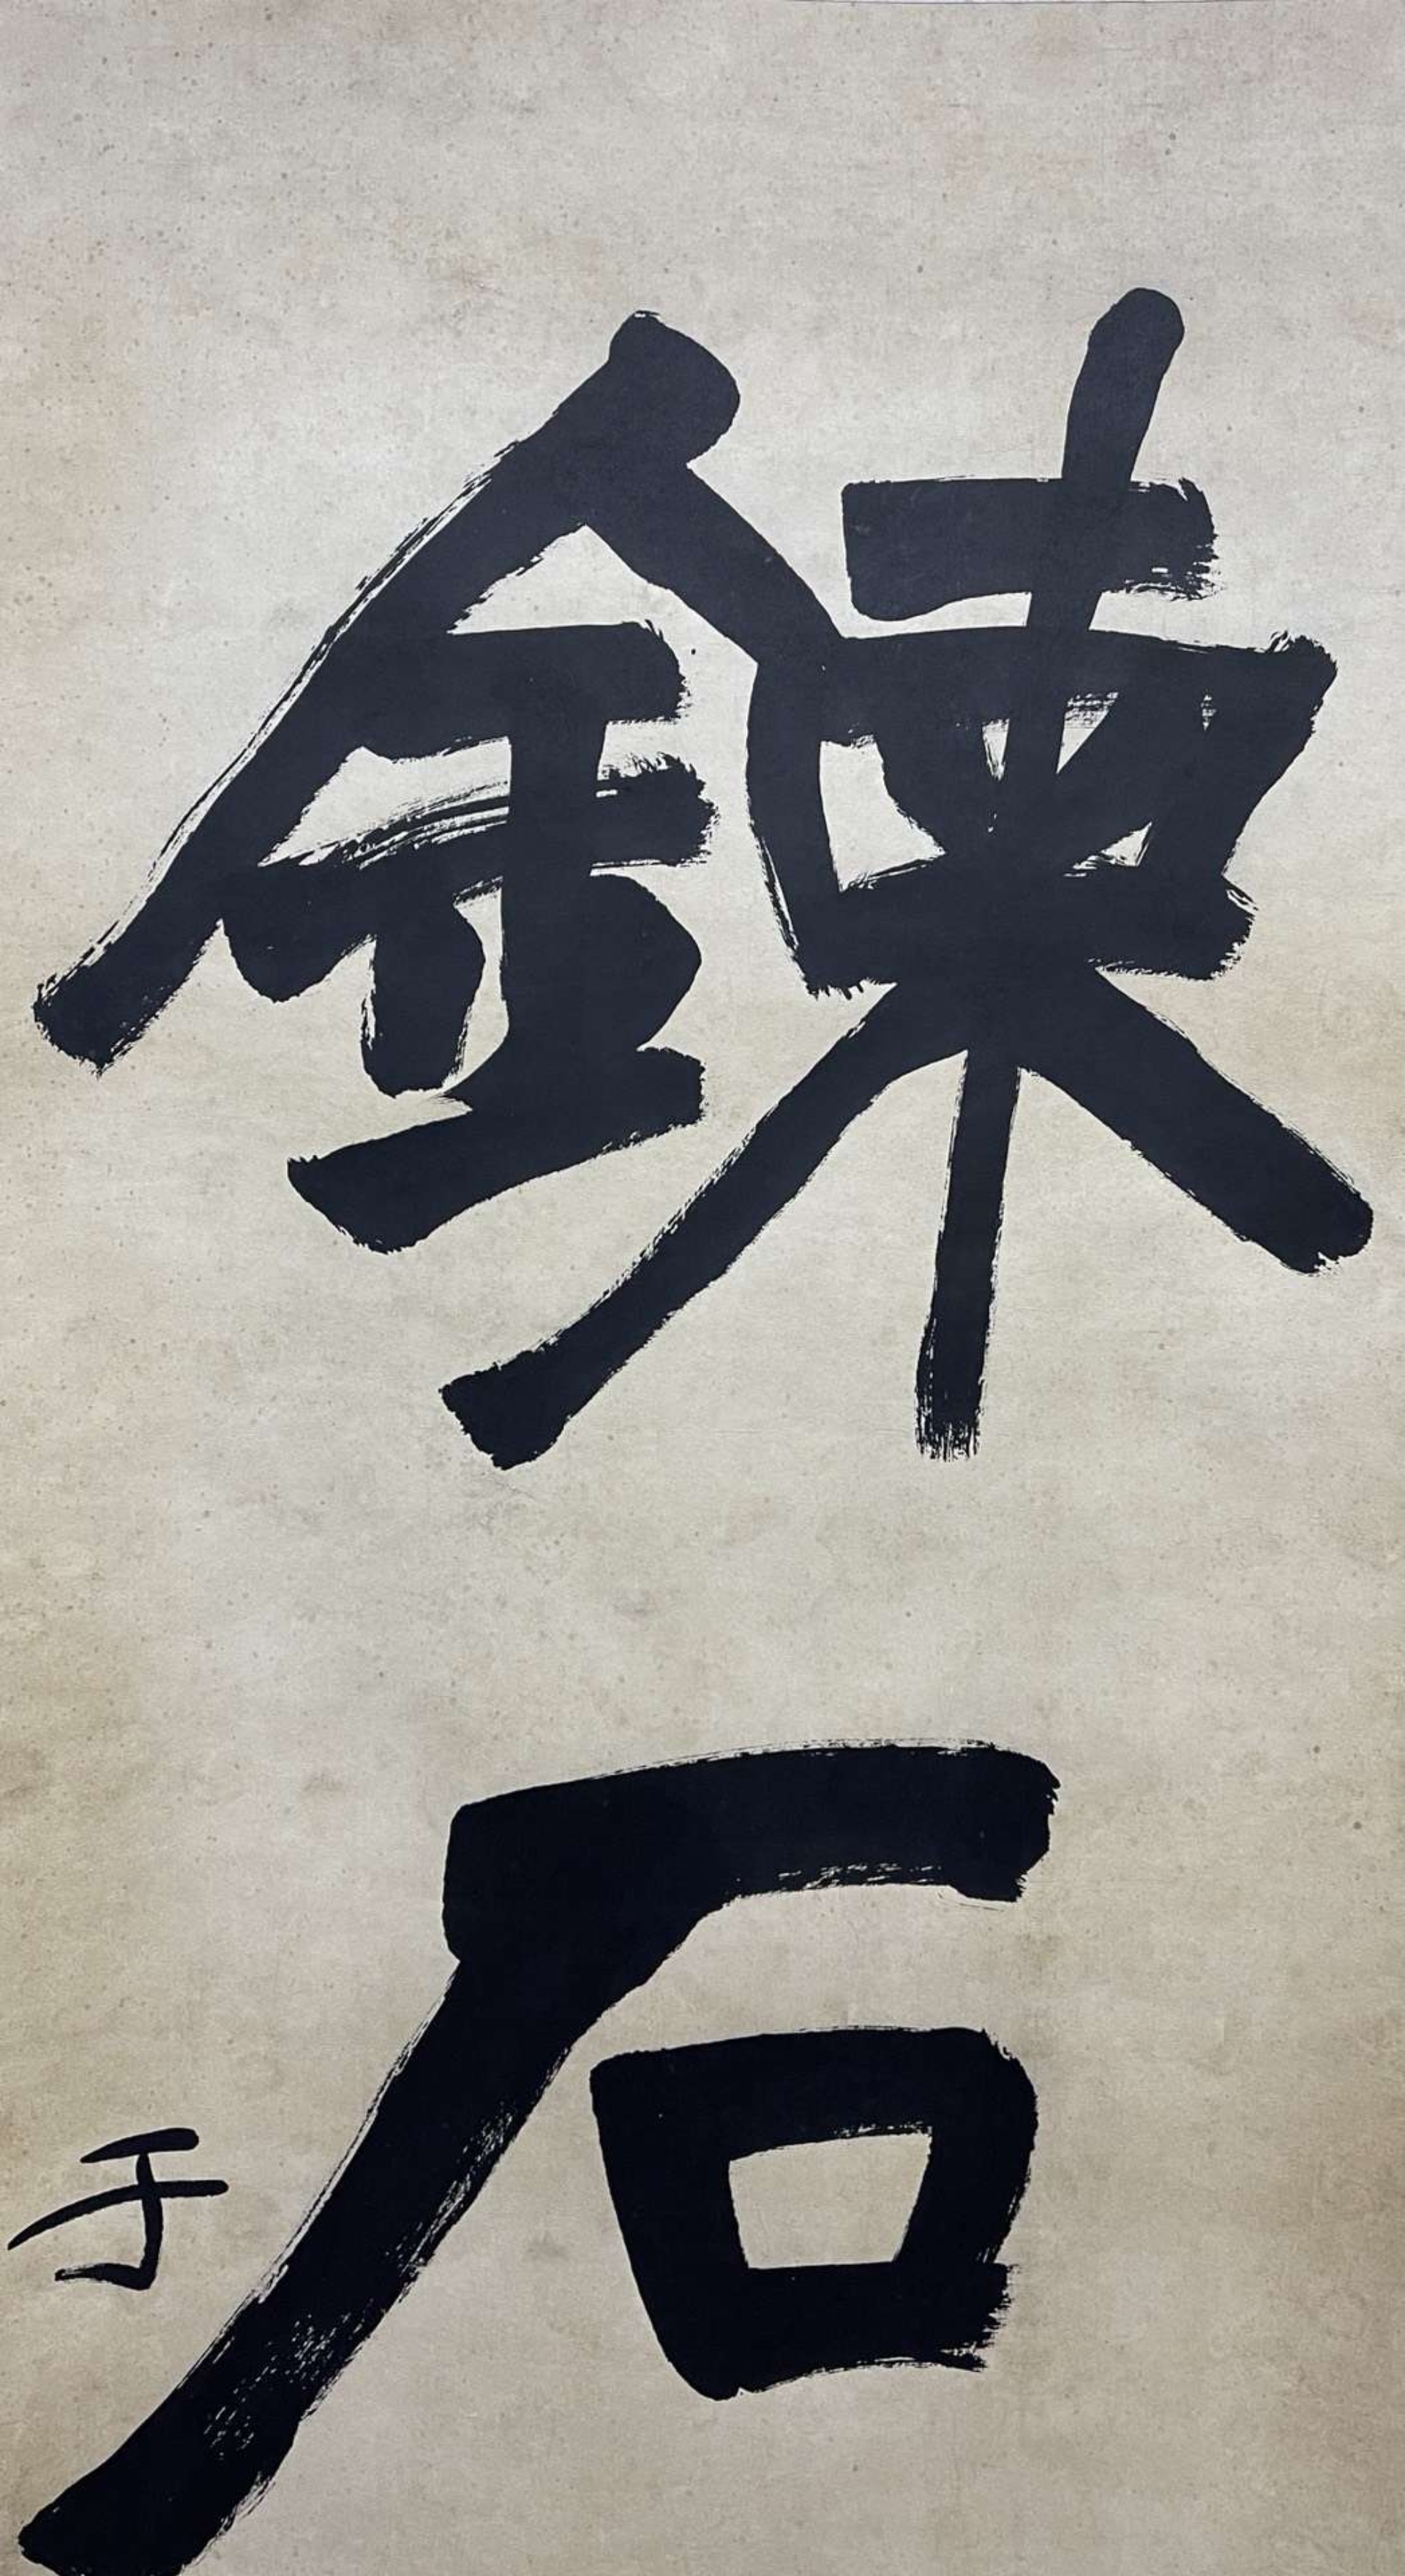 鍊石
于